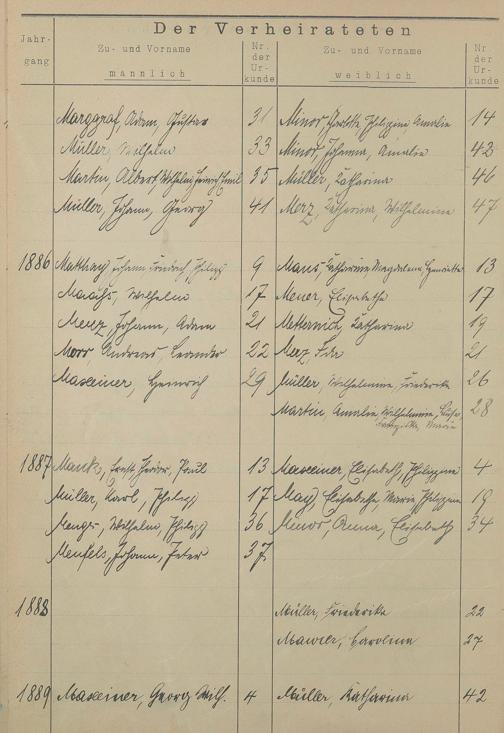 Der Verheirateten
Jahr-
gang
Zu- und Vorname
männlich
Nr.
der
Ur-
kunde
Zu- und Vorname
weiblich
Nr
der
Ur-
kunde
Marggraf, Adam, Gustav 31 Minor, Philippine Amalie 14
Müller, Wilhelm 33 Minor, Johanna, Amalie 42
Martin, Albert Wilhelm Heinrich Emil 35 Müller, Katharina 46
Müller, Johann, Georg 41 Merz, Katharina, Wilhelmine 47
1886 Matthay Johann Friedrich, Philipp 9 Maus, Katharina Magdalena, Henriette 13
Wilhelm 17 Elisabetha 17
Menz, Johann, Adam 21 Metternich, Katharina 19
Morr, Andreas, Leander 22 Merz, Ida 21
Maxeiner, Heinrich 29 Müller, Wilhelmine, Friederike 26
Martin, Amalie, Wilhelmine, 28
Marie
1887 Ernst, Paul 13 Maxeiner Elisabeth, Philippine 4
Müller, Karl, Philipp 17 May, Elisabetha, Maria Philippine 19
Menges, Wilhelm, Philipp 36 Minor, Anna, Elisabeth 34
Menfels, Johann, Peter 37
1888 Müller, Friederike 22
Maurer, Karoline 27
1889 Maxeiner, Georg Wilh. 4 Müller, Katharina 42